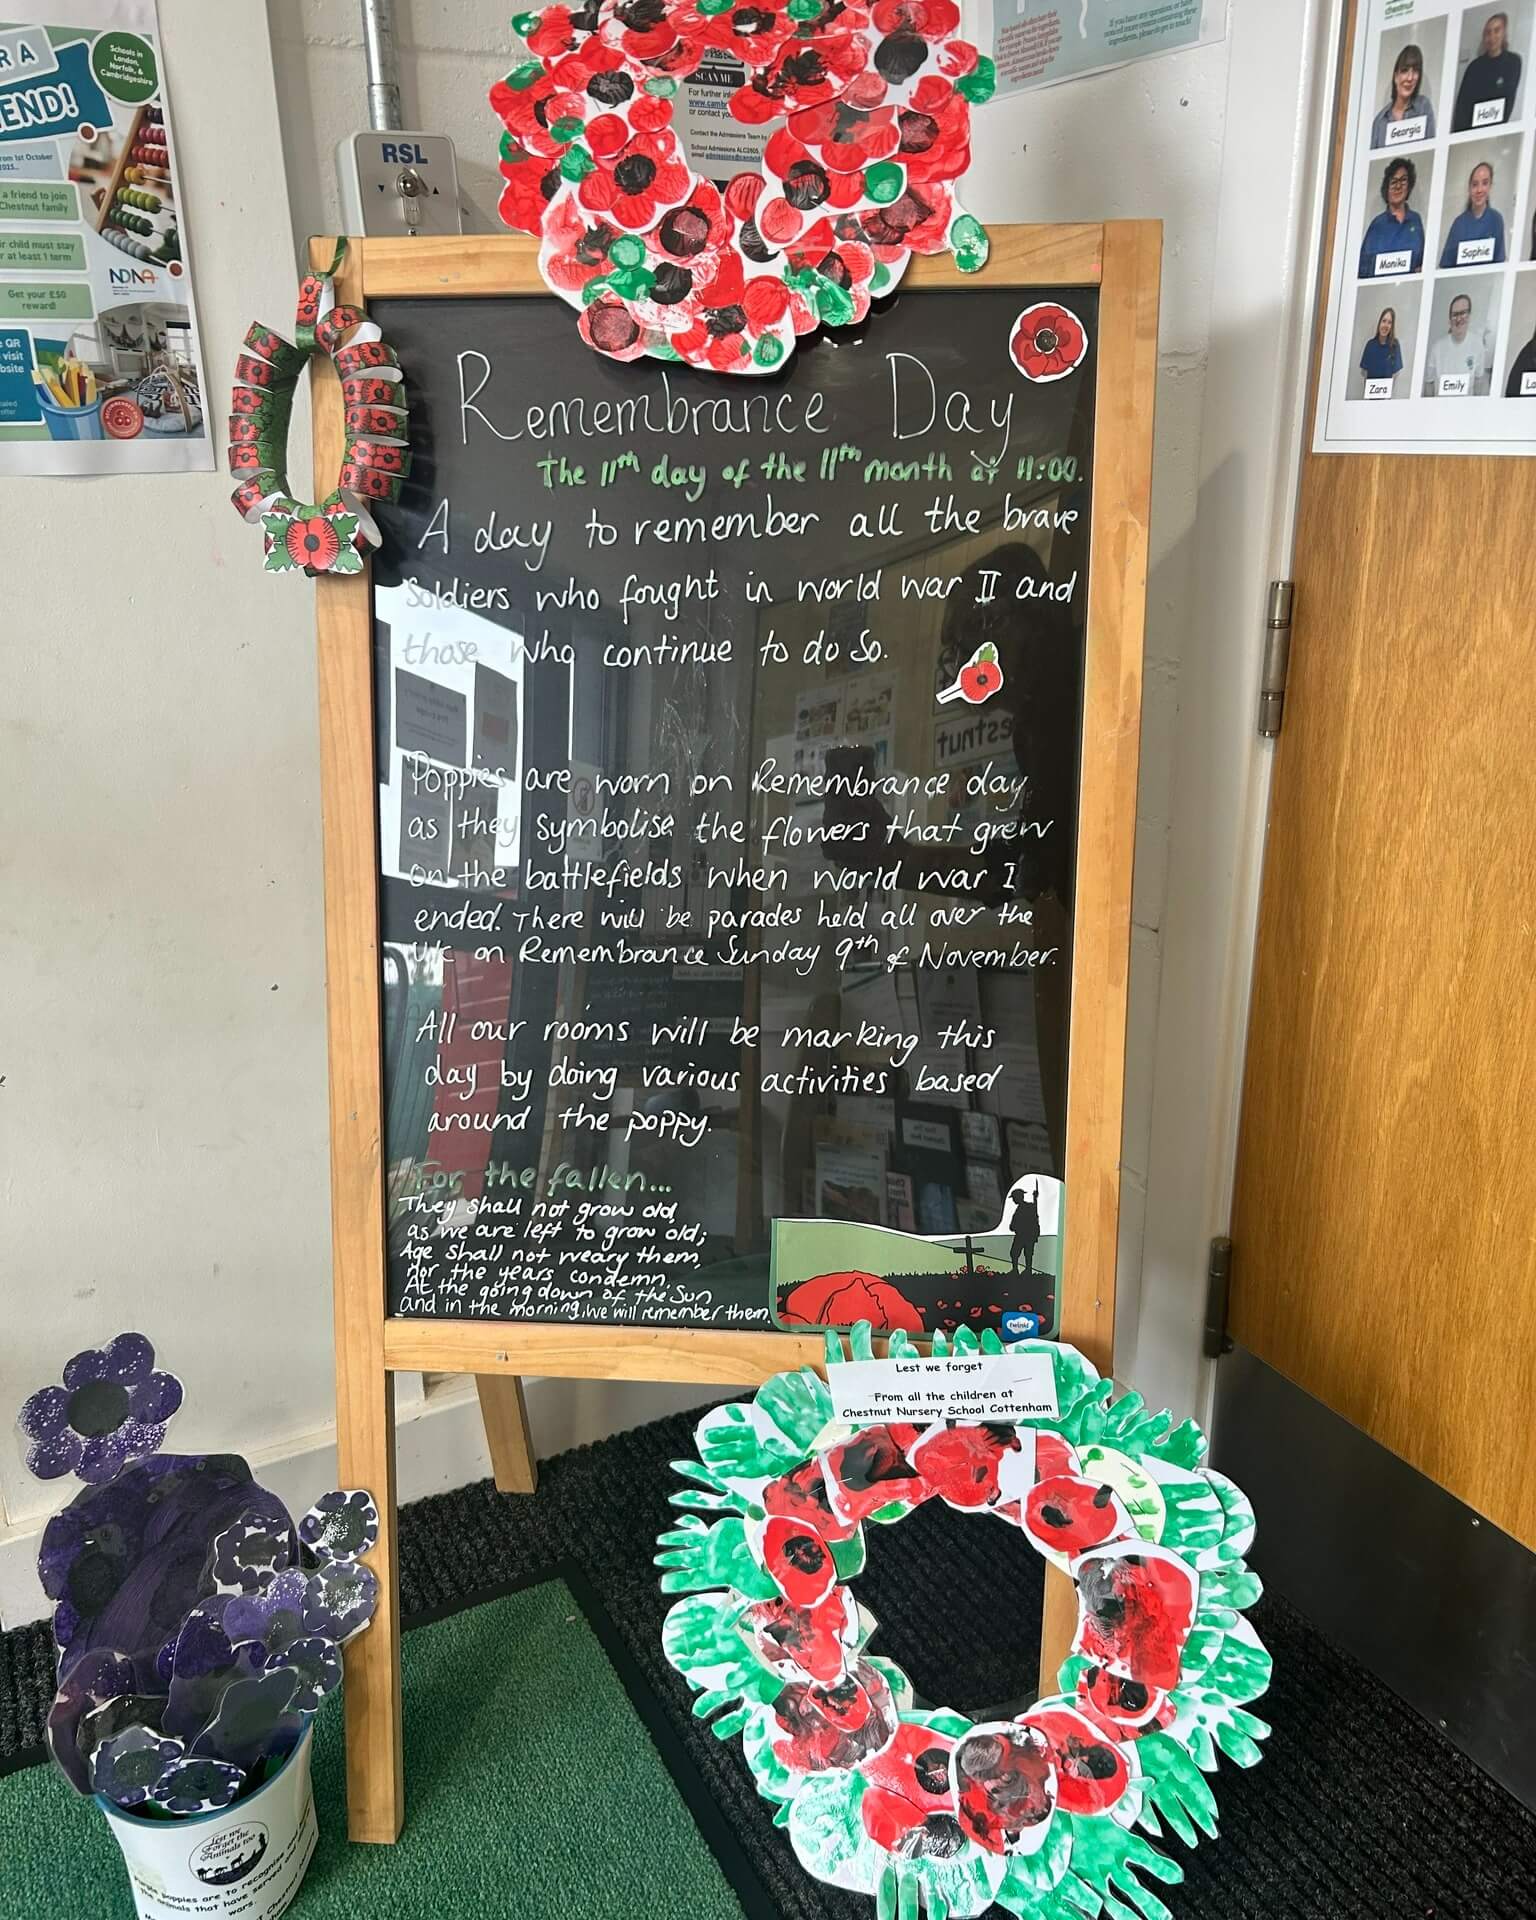 R A
END!
Schools in
London,
Norfolk, &
Cambridgeshire
a friend to join
Chestnut family
ir child must stay
r at least 1 term
Get your £50
reward!
NDNA
QR
visit
RSL
SCAN ME
For further
www.camb
or contact you
Contact the Admissions Team
School Admissions ALC2605,
email admissions@
If you have any questions or
chestnut
Georgia
Holly
Monika
Sophie
Zara
Emily
Remembrance Day
The 11th day of the 11th month at 11:00.
A day to remember all the brave
Soldiers who fought in world war II and
those who continue to do so.
Poppies are worn on Remembrance day
as they symbolise the flowers that grew
on the battlefields when world war I
ended. There will be parades held all over the
UK on Remembrance Sunday 9th of November.
All our rooms will be marking this
day by doing various activities based
around the poppy.
For the fallen...
They shall not grow old,
as we are left to grow old;
Age shall not weary them,
nor the years condemn.
At the going down of the Sun
and in the morning, we will remember them.
twinkl
Lest we forget
From all the children at
Chestnut Nursery School Cottenham
Lest We
Forget the
Animals too
Purple poppies are to recognise
the animals that have served
wars.